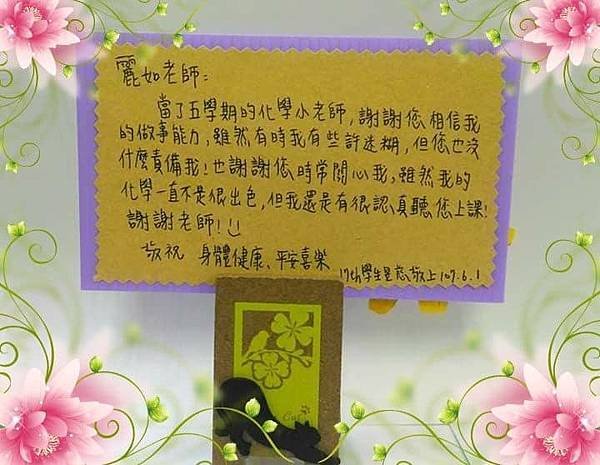 麗如老師：
當了五學期的化學小老師，謝謝您相信我
的做事能力，雖然有時我有些許迷糊，但您也沒
什麼責備我！也謝謝您時常關心我，雖然我的
化學一直不是很出色，但我還是有很認真聽您上課！
謝謝老師！
敬祝 身體健康、平安喜樂
學生 敬上 107.6.1
Cat